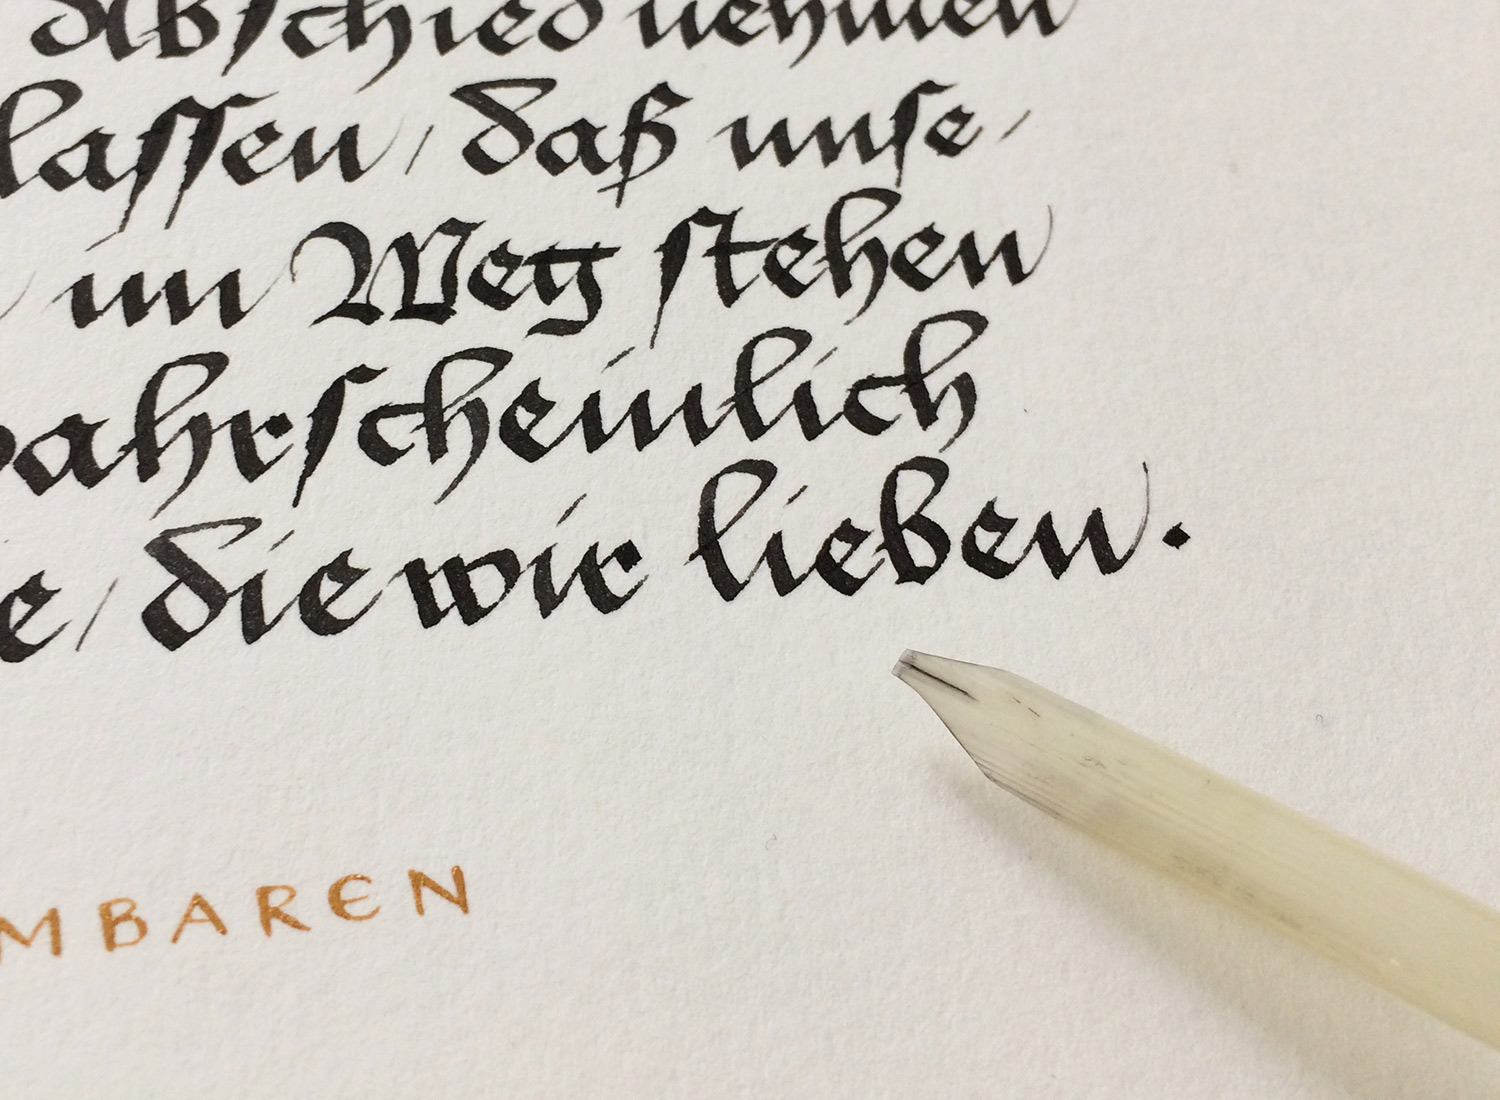 Abſchied nehmen
laſſen / daß unſe-
im Weg ſtehen
ahrſcheinlich
e / die wir lieben.
MBAREN